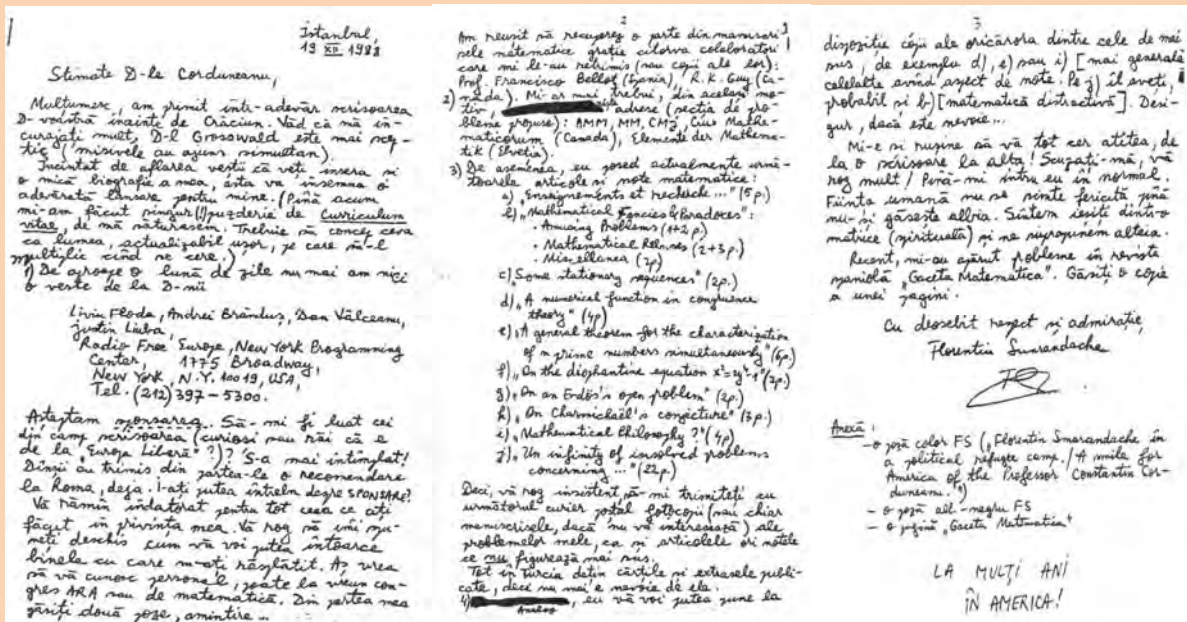 Istanbul,
19 XII 1988
Stimate D-le Corduneanu,
Mulţumesc, am primit într-adevăr scrisoarea
D-voastră inainte de Crăciun. Văd că mă în-
curajaţi mult, D-l Grosswald este mai scep-
tic (misivele au ajuns simultan).
Încîntat de aflarea veştii că veţi insera şi
o mică biografie a mea, asta va însemna o
adevărată lansare pentru mine. (Pînă acum
mi-am făcut singur(!) puzderie de Curriculum
vitae, de mă săturasem. Trebuie să concep ceva
ca lumea, actualizabil uşor, pe care să-l
multiplic cînd se cere.)
1) De aproape o lună de zile nu mai am nici
o veste de la D-nii
Liviu Floda, Andrei Brânduş, Dan Vâlceanu,
Justin Liuba,
Radio Free Europe, New York Programming
Center, 1775 Broadway,
New York, N.Y. 10019, USA,
Tel. (212) 397-5300.
Aşteptam sponsorii. Să-mi fi luat cei
din camp scrisoarea (curioşi sau răi că e
de la "Europa Liberă")? S-a mai întîmplat!
Dînşii au trimis din partea-le o recomandare
la Roma, deja. I-aţi putea întreba despre SPONSARE?
Vă rămîn îndatorat pentru tot ceea ce aţi
făcut în privinţa mea. Vă rog să îmi spu-
neţi deschis cum vă voi putea întoarce
binele cu care m-aţi răsplătit. Aş vrea
să vă cunosc personal, poate la vreun con-
gres ARA sau de matematică. Din partea mea
găsiţi două poze, amintire...
2
Am reuşit să recuperez o parte din manuscri-
sele matematice graţie cîtorva colaboratori
care mi le-au retrimis (sau copii ale lor):
Prof. Francisco Bellot (Spania), R.K. Guy (Ca-
nada).
2) Mi-ar mai trebui, din acelaşi mo-
tiv, adrese (secţia de pro-
bleme propuse): AMM, MM, CMJ, Crux Mathe-
maticorum (Canada), Elemente der Mathema-
tik (Elveţia).
3) De asemenea, eu posed actualmente urmă-
toarele articole şi note matematice:
a) „Enseignements et recherche ..." (5p.)
b) „Mathematical Fancies & Paradoxes":
· Amusing Problems (1+2 p.)
· Mathematical Relaxes (2+3p.)
· Miscellanea (7p)
c) „Some stationary sequences" (2p.)
d) „A numerical function in congruence
theory" (4p)
e) „A general theorem for the characterization
of n prime numbers simultaneously" (6p.)
f) „On the diophantine equation x²=2y⁴-1" (3p.)
g) „On an Erdös's open problem" (2p.)
h) „On Charmichaël's conjecture" (3p.)
i) „Mathematical Philosophy?" (4p)
j) „Un infinity of unsolved problems
concerning ..." (22p.)
Deci, vă rog insistent, să-mi trimiteţi cu
următorul curier poştal fotocopii (sau chiar
manuscrisele, dacă nu vă interesează) ale
problemelor mele, ca şi articolele ori notele
ce nu figurează mai sus.
Tot în Turcia deţin cărţile şi extrasele publi-
cate, deci nu mai e nevoie de ele.
4) Analog, eu vă voi putea pune la
3
dispoziţie copii ale oricărora dintre cele de mai
sus, de exemplu d), e) sau i) [mai generale
celelalte avînd aspect de note. Pe j) îl aveţi,
probabil şi b) [matematică distractivă]. Desi-
gur, dacă este nevoie...
Mi-e şi ruşine să vă tot cer atîtea, de
la o scrisoare la alta! Scuzaţi-mă, vă
rog mult! Pînă-mi intru eu în normal.
Fiinţa umană nu se simte fericită pînă
nu-şi găseşte albia. Sîntem ieşiţi dintr-o
matrice (spirituală) şi ne suprapunem alteia.
Recent, mi-au apărut probleme în revista
spaniolă „Gaceta Matematica". Găsiţi o copie
a unei pagini.
Cu deosebit respect şi admiraţie,
Florentin Smarandache
Anexă:
- o poză color FS („Florentin Smarandache în
a political refugee camp. / A smile for
America of the Professor Constantin Cor-
duneanu.")
- o poză alb-negru FS
- o pagină „Gaceta Matematica"
LA MULŢI ANI
ÎN AMERICA!